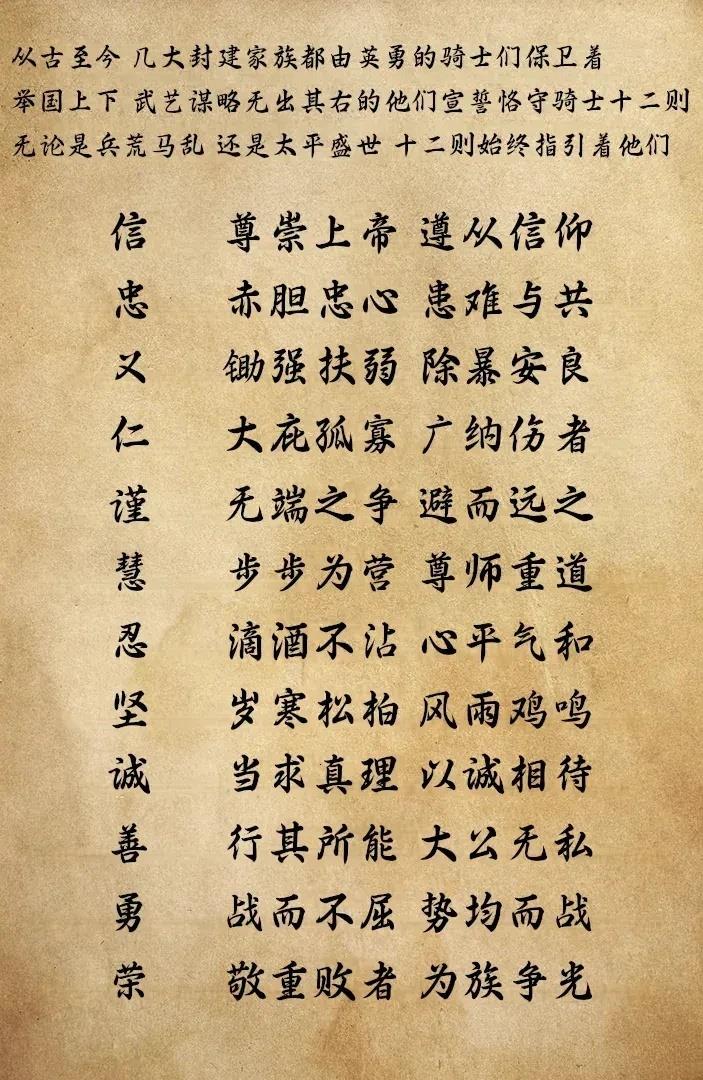 从古至今 几大封建家族都由英勇的骑士们保卫着
举国上下 武艺谋略无出其右的他们宣誓恪守骑士十二则
无论是兵荒马乱 还是太平盛世 十二则始终指引着他们
信 尊崇上帝 遵从信仰
忠 赤胆忠心 患难与共
义 锄强扶弱 除暴安良
仁 大庇孤寡 广纳伤者
谨 无端之争 避而远之
慧 步步为营 尊师重道
忍 滴酒不沾 心平气和
坚 岁寒松柏 风雨鸡鸣
诚 当求真理 以诚相待
善 行其所能 大公无私
勇 战而不屈 势均而战
荣 敬重败者 为族争光